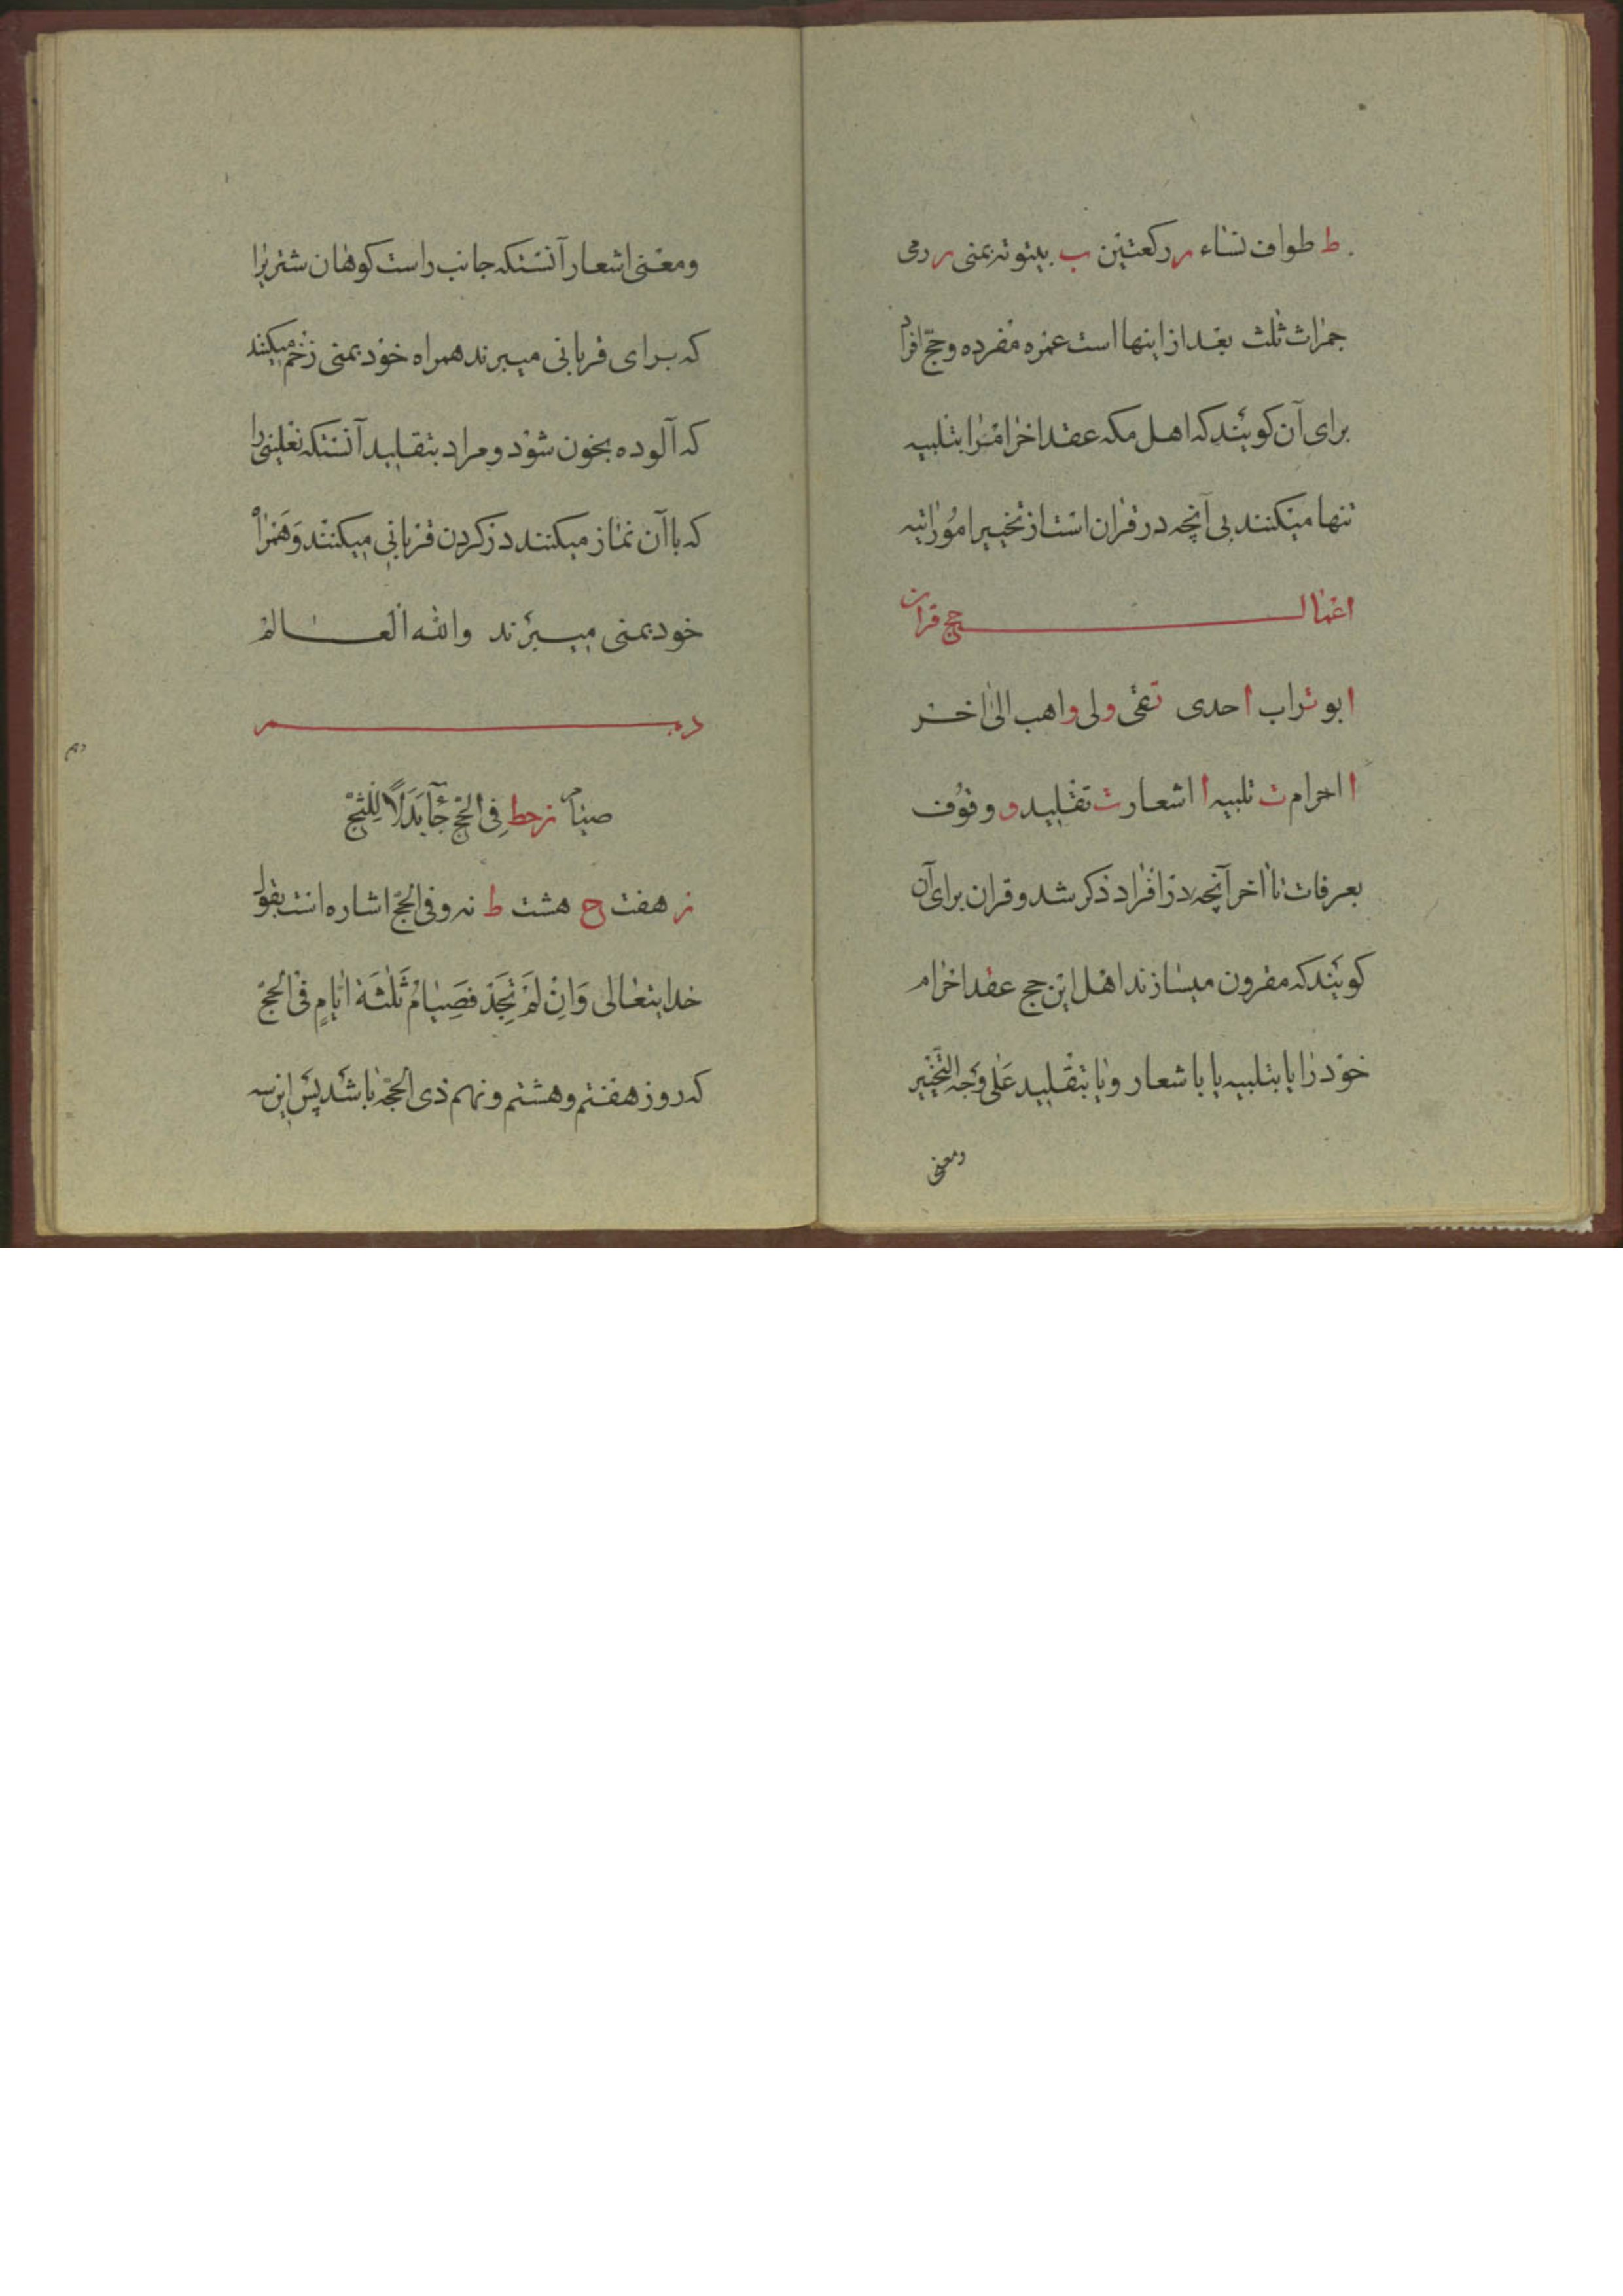 ط طواف نساء ر رکعتین ب بیتوته بمنی ر رمی
جمرات ثلث بعد از اینها است عمره مفرده و حج افراد
برای آن کویند که اهل مکه عقد احرام را بتلبیه
تنها میکنند بی آنچه در قران است از تخییر امور اتیه
اعمال حج قران
ابو تراب احدی تقی ولی واهب الی اخر
ا احرام ت تلبیه ا اشعار ت تقلید و وقوف
بعرفات تا اخر آنچه در افراد ذکر شد و قران برای آن
کویند که مقرون میسازند اهل این حج عقد احرام
خود را یا بتلبیه یا باشعار و یا بتقلید علی وجه التخییر
ومعنی
ومعنی اشعار آنستکه جانب راست کوهان شتریرا
که برای قربانی میبرند همراه خود بمنی زخم میکنند
که آلوده بخون شود و مراد بتقلید آنستکه نعلینی را
که با آن نماز میکنند در کردن قربانی میکنند و همراه
خود بمنی میبرند والله العالم
صیام زحط فی الحج جآ بدلا للثج
ز هفت ح هشت ط نه و فی الحج اشاره است بقول
خدایتعالی وَاِنْ لَمْ تَجِدْ فَصِیامُ ثَلٰثَةَ ایّامٍ فی الحجّ
که روز هفتم و هشتم و نهم ذی الحجه باشد پس این سه